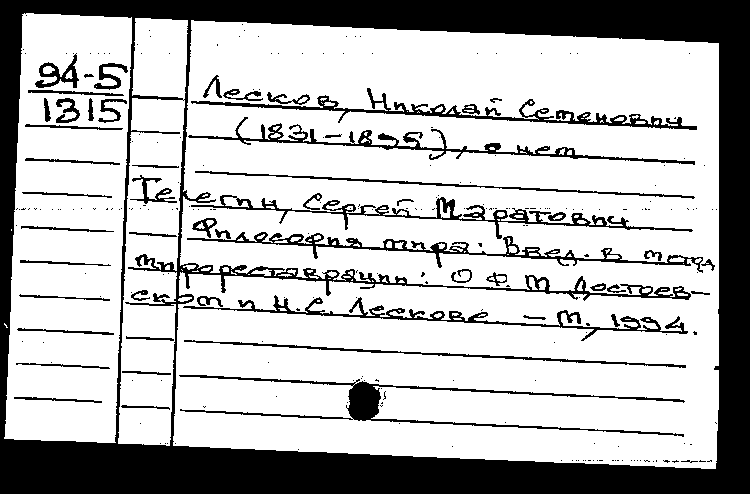 94-5
1315
Лесков, Николай Семенович
(1831-1895), о нем
Телегин, Сергей Маратович
Философия мифа: Введ. в метод
мифореставрации: О Ф. М Достоев-
ском и Н.С. Лескове - М., 1994.